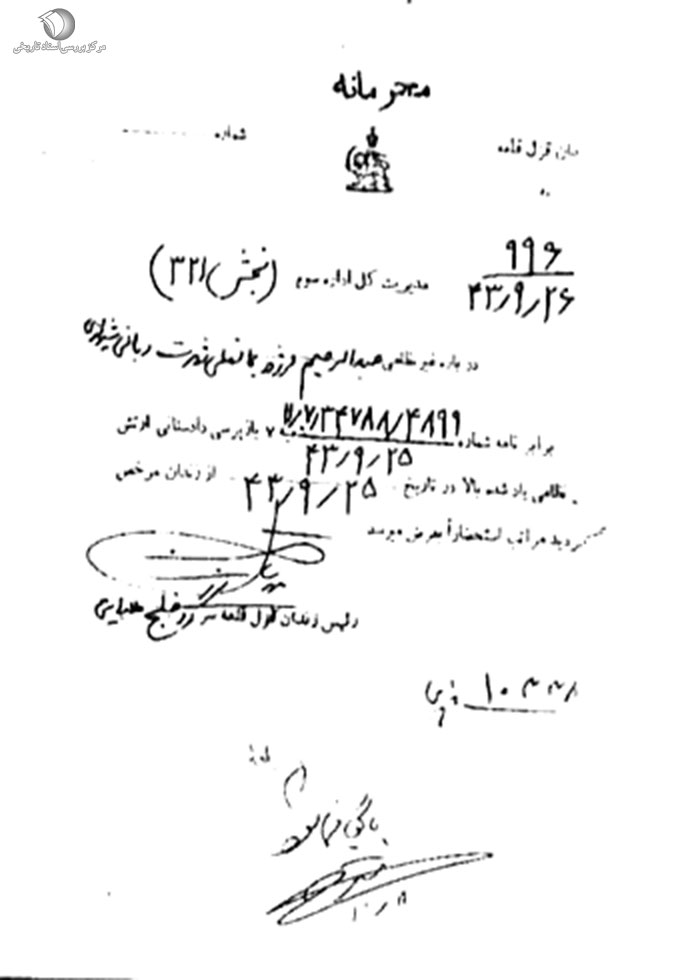 مرکز بررسی اسناد تاریخی
محرمانه
شماره
زندان قزل قلعه
۹۹۶
۴۳/۹/۲۶
مدیریت کل اداره سوم (بخش ۳۲۱)
درباره غیر نظامی عبدالرحیم فرزند شهرت ربانی شیرازی
برابر نامه شماره ۷/۰۷/۳۴۷۸۸/۴۸۹۹ شعبه ۷ بازپرسی دادستانی ارتش
۴۳/۹/۲۵
نظامی یاد شده بالا در تاریخ ۴۳/۹/۲۵ از زندان مرخص
گردید مراتب استحضاراً بعرض میرسد
رئیس زندان قزل قلعه
بایگانی شود